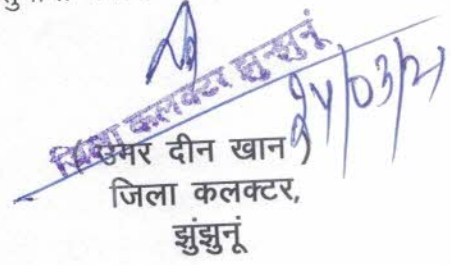 जिला कलक्टर झुन्झुनूं
24/03/21
( उमर दीन खान )
जिला कलक्टर,
झुंझुनूं